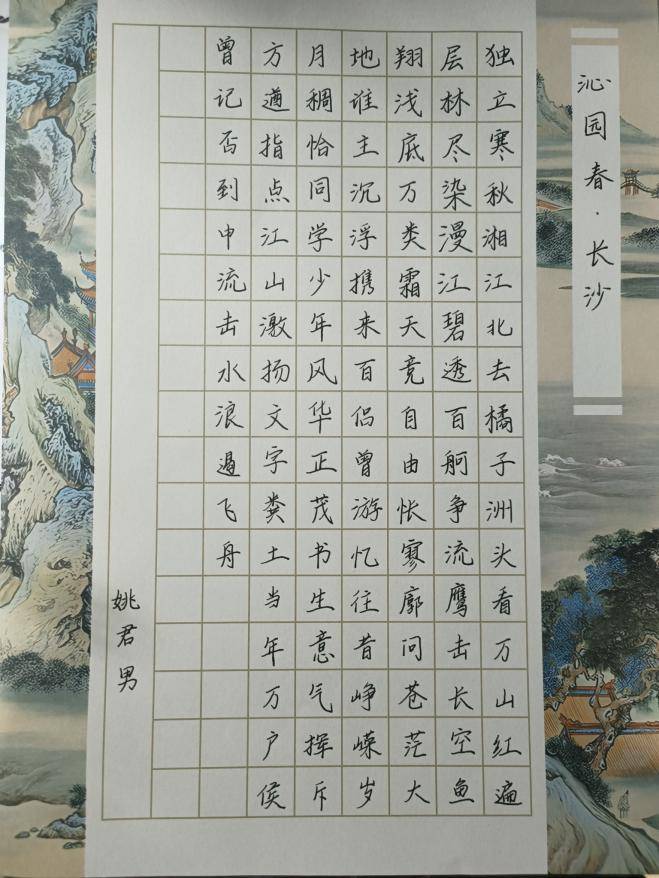 沁园春·长沙
独立寒秋湘江北去橘子洲头看万山红遍
层林尽染漫江碧透百舸争流鹰击长空鱼
翔浅底万类霜天竞自由怅寥廓问苍茫大
地谁主沉浮携来百侣曾游忆往昔峥嵘岁
月稠恰同学少年风华正茂书生意气挥斥
方遒指点江山激扬文字粪土当年万户侯
曾记否到中流击水浪遏飞舟
姚君男